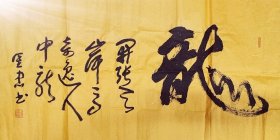 龍
開張天
岸馬
奇逸人
中龍
忠书